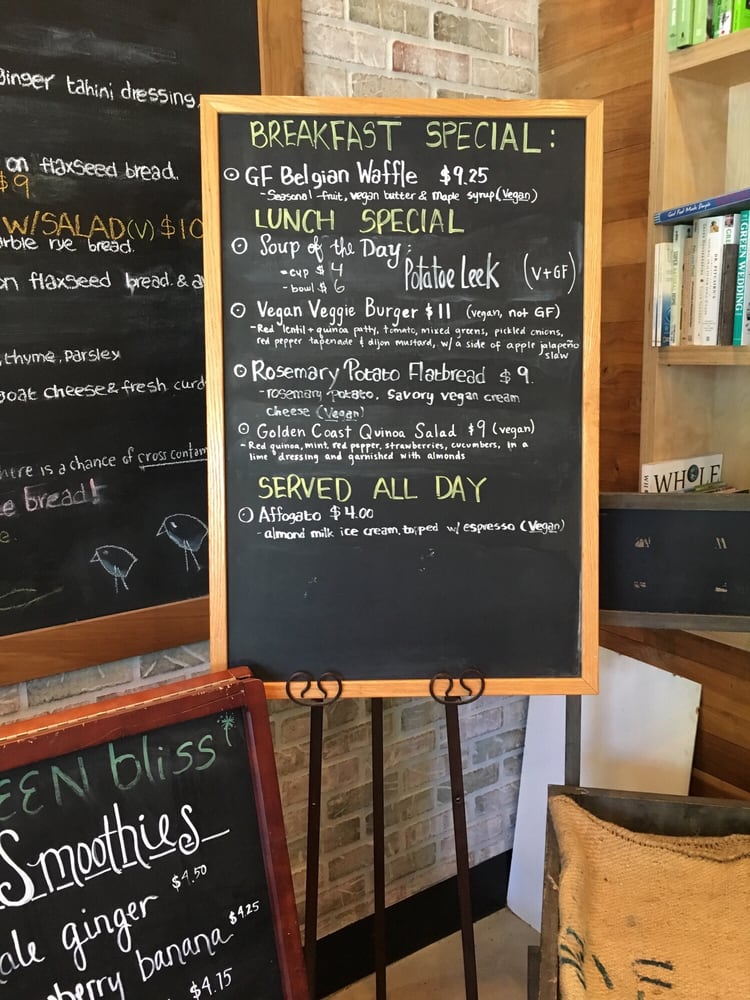 ginger tahini dressing.
on flaxseed bread.
$9
W/SALAD(V) $10
rble rye bread.
on flaxseed bread. & a
thyme, Parsley
oat cheese & fresh curd
there is a chance of cross contam
e bread!
e.
BREAKFAST SPECIAL:
GF Belgian Waffle $9.25
- Seasonal fruit, vegan butter & maple syrup (Vegan)
LUNCH SPECIAL
Soup of the Day:
- cup $4
- bowl $6
Potatoe Leek (V+GF)
Vegan Veggie Burger $11 (vegan, not GF)
- Red lentil + quinoa patty, tomato, mixed greens, pickled onions,
red pepper tapenade & dijon mustard, w/ a side of apple jalapeño
slaw
Rosemary Potato Flatbread $9.
- rosemary potato, savory vegan cream
cheese (Vegan)
Golden Coast Quinoa Salad $9 (vegan)
- Red quinoa, mint, red pepper, strawberries, cucumbers, in a
lime dressing and garnished with almonds
SERVED ALL DAY
Affogato $4.00
- almond milk ice cream, topped w/ espresso (Vegan)
EEN bliss
Smoothies
ale ginger $4.50
berry banana $4.25
$4.15
Good Food Made Simple
GREEN WEDDING
WHOLE